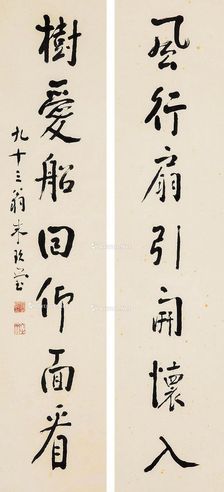 風行扇引開懷入
樹愛船回仰面看
九十三翁朱玖瑩